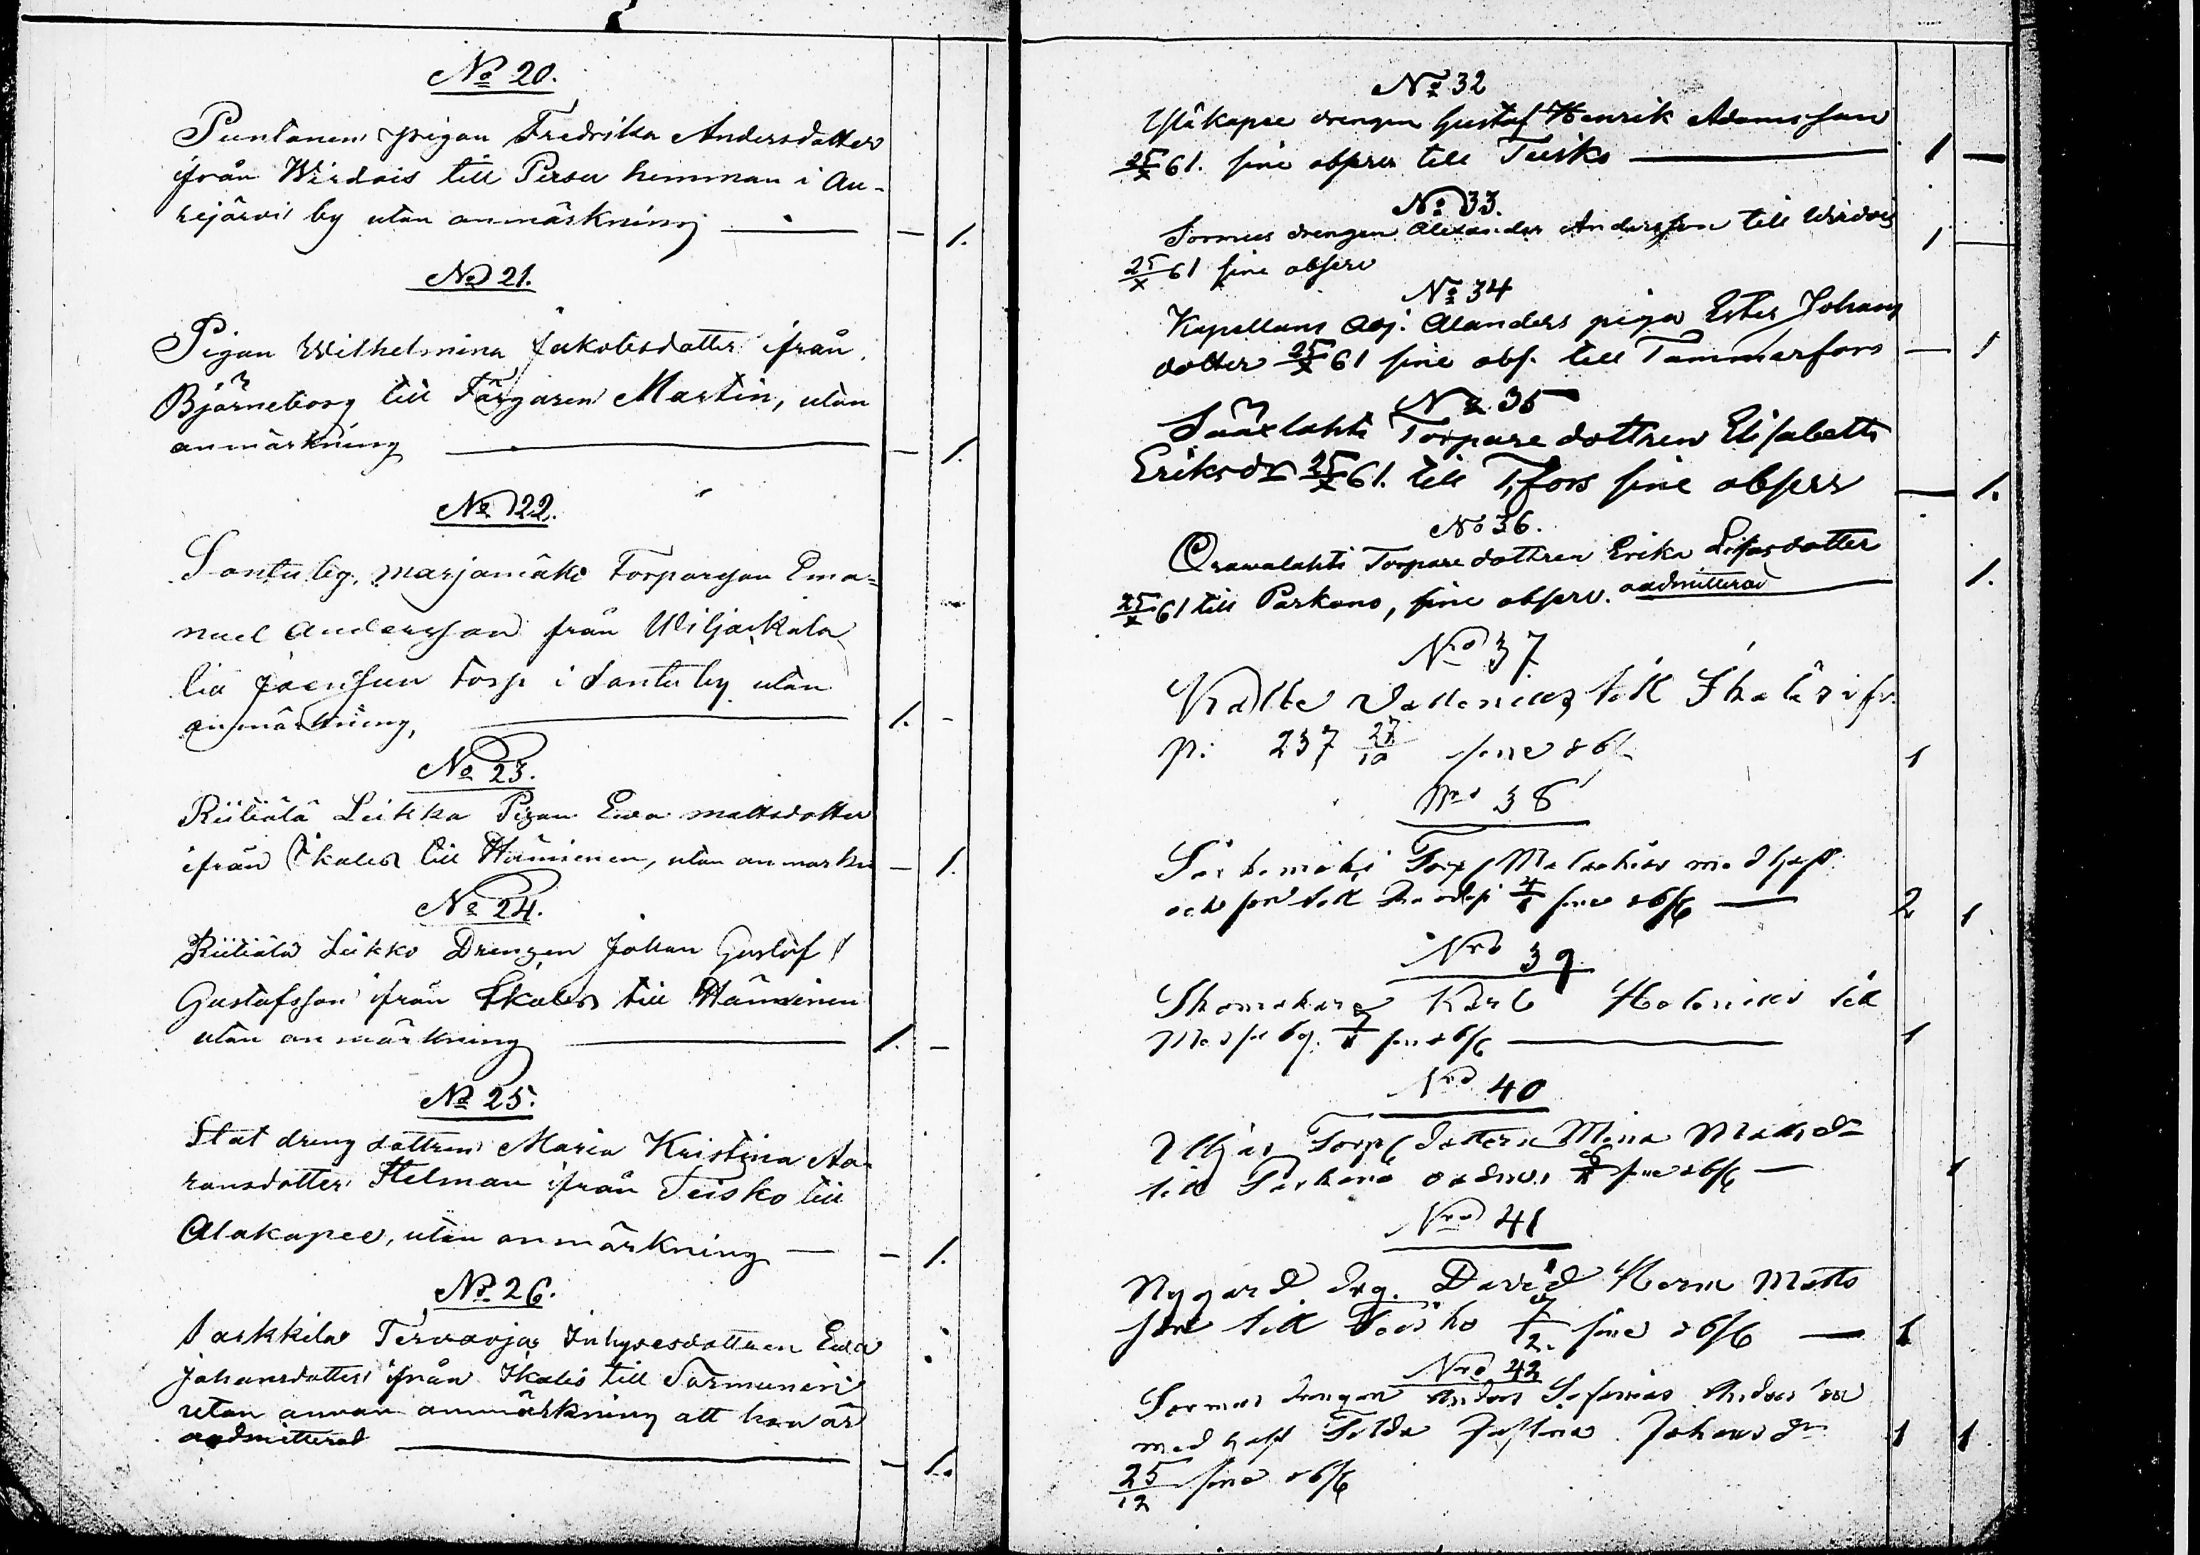 No 20.
Puntanen pigan Fredrika Andersdotter
ifrån Wirdois till Perseu hemman i Au-
rejärvi by utan anmärkning — — 1.
No 21.
Pigan Wilhelmina Jakobsdotter ifrån
Björneborg till Färgaren Martin, utan
anmärkning — — 1.
No 22.
Santu by, Marjamäki Torparson Ema-
nuel Andersson från Wiljakkala
till torp i Santu by utan
anmärkning, — 1. -
No 23.
Riitiälä Leikka Pigan Ewa Mattsdotter
ifrån Ikalis till Häminen, utan anmärkn — 1.
No 24.
Riitiälä Leikko Drengen Johan Gustaf
Gustafsson ifrån Ikalis till Häminen
utan anmärkning — 1. -
No 25.
Stat dreng dottren Maria Kristina Aa-
ronsdotter Helman ifrån Teisko till
Alakapee, utan anmärkning — - 1.
No 26.
Sarkkila Terwaoja Inhysesdottren Ewa
Johansdotter ifrån Ikalis till Sormunen
utan annan anmärkning att hon är
oadmitterad — - 1.
No 32
Yläkapee drengen Gustaf Henrik Adamsson
25/X 61. sine observ till Teisko — 1 —
No 33.
Sormus drengen Alexander Andersson till Wirdois 1 —
25/X 61 sine observ
No 34
Kapellans Adj. Alanders piga Ester Johans
dotter 25/X 61 sine obs. till Tammerfors — 1
No 35
Sääxlahti Torpare dottren Elisabeth
Eriksdr 25/X 61. till T,fors sine obserr — 1.
No 36.
Orawalahti Torpare dottren Erika
25/X 61 till Parkano, sine observ. oadmitterad — 1.
Nro 37
till Ikalis
p. 237 27/10 sine obs 1
Nro 38
Särkemäki Torp med hust
och son till sine obs — 2 1
Nro 39
Skomakare Karl Holenius till
by. sine obs — 1
Nro 40
Torp dottern Mina Matsdr
till Parkano oadm. sine obs — 1
Nro 41
Nygård drg. David Herm Matts
son till Teisko 7/12. sine obs — 1
Nro 42
Sormus drengen Anders son
med hust Tilda Justina Johansdr 1 1
25/12 sine obs